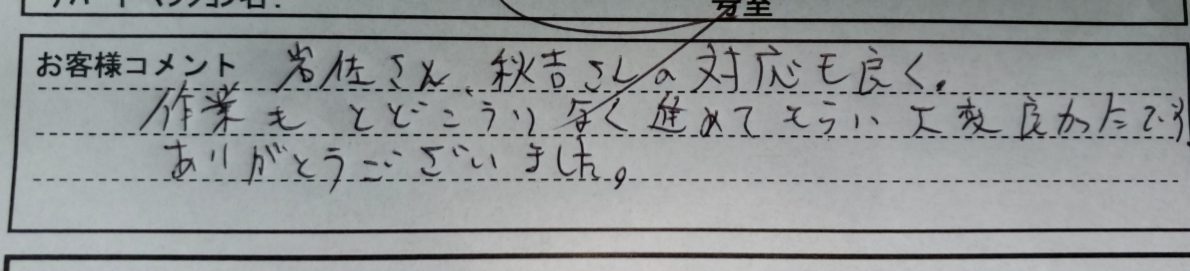 号室
お客様コメント 岩佐さん、秋吉さんの対応も良く、
作業もとどこうり なく進めてもらい大変良かったです。
ありがとうございました。